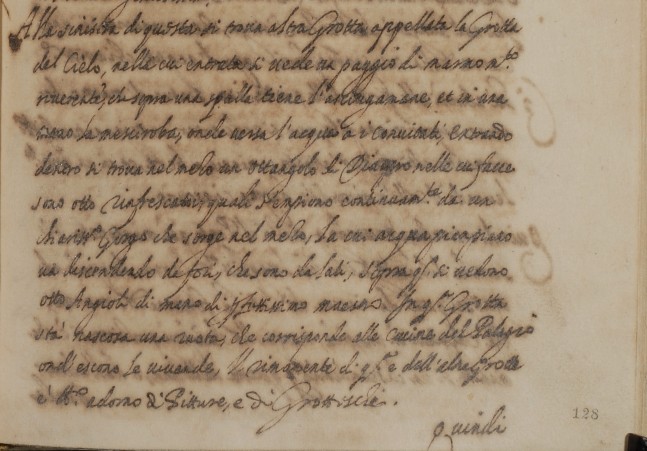 Alla sinistra di questa si trova altra Grotta appellata la Grotta
del Cielo, nelle cui entrata si vede un paggio di marmo m.to
riverente, che sopra una spalla tiene l'asciugamane, et in una
mano la mesciroba, onde versa l'acqua a i Convitati, Entrando
dentro si trova nel mezo un ottangolo di Diaspro nelle cui facce
sono otto rinfrescatoi, quali s'empiono continuam.te da un
chiariss.o Gorgo che sorge nel mezo, la cui acqua
va descendendo da fori, che sono da lati, sopra q.li si vedono
otto Angioli di mano di maestro. In q.ta Grotta
sta nascosa una ruota, che corrisponde alle cucine del Palazzo
ond'escono le vivande, il rimanente di q.ta e dell'altre Grotte
è tt.o adorno di Pitture, e di Grottesche.
Quindi
128